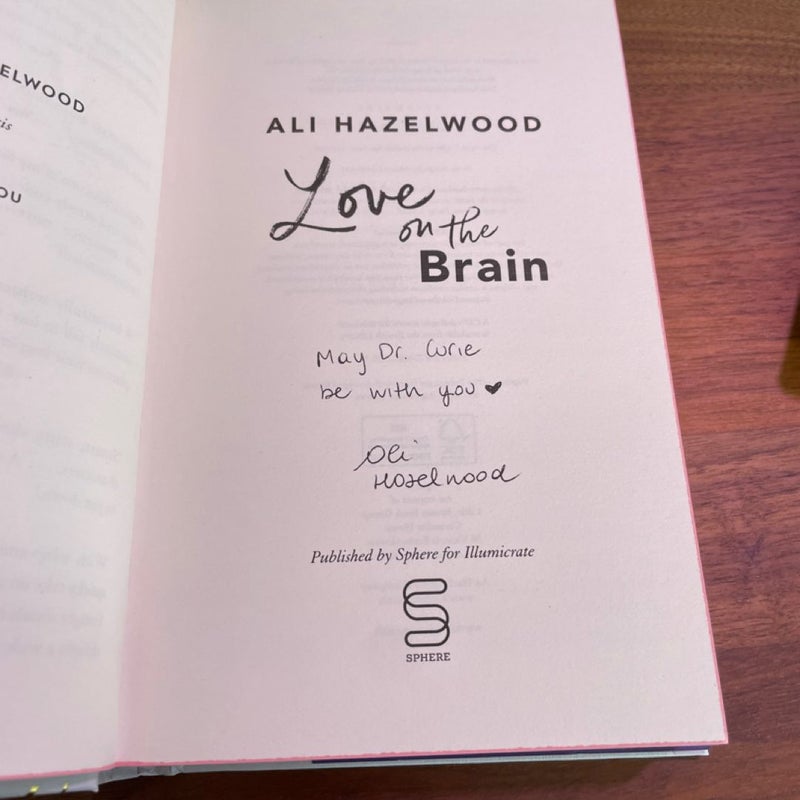 ELWOOD
is
OU
ALI HAZELWOOD
Love
on the
Brain
May Dr. Curie
be with you ♥
Ali
Hazelwood
Published by Sphere for Illumicrate
SPHERE